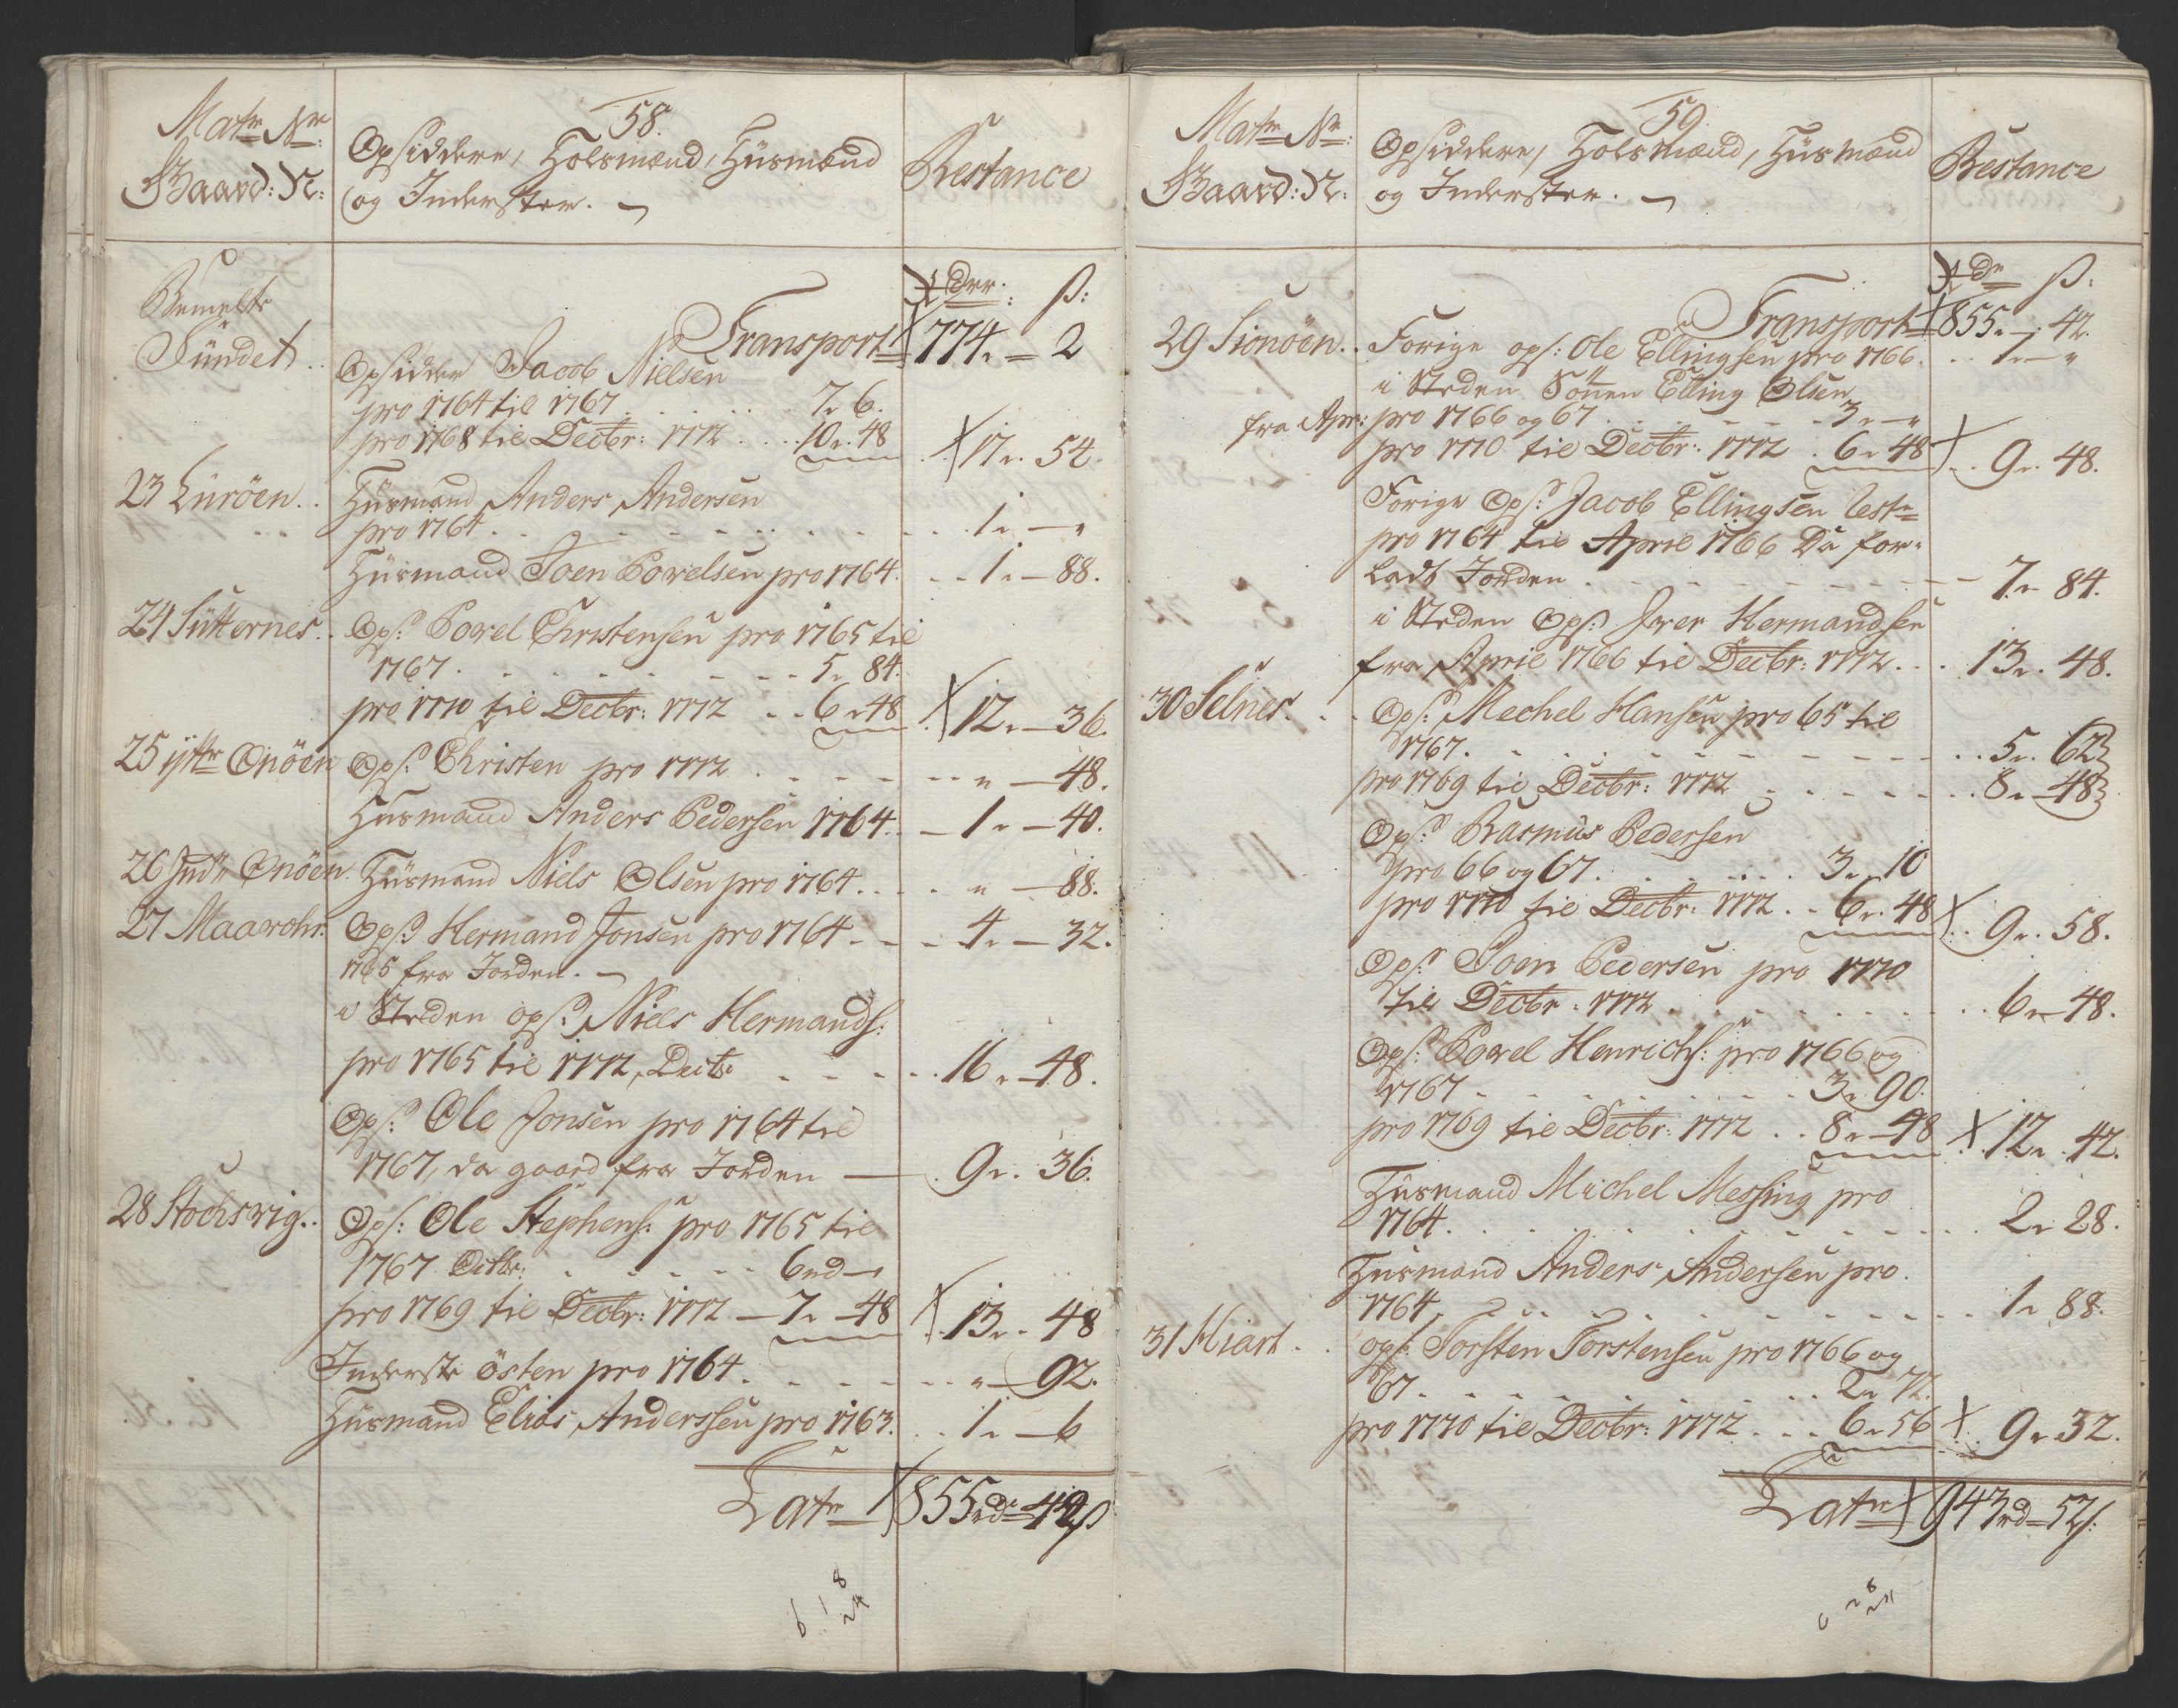 58.
Matr Nr:
Gaard: N:
Opsiddere, Holsmænd, Huusmænd
og Inderster.
Restance
Rdrr: ß:
Transport 774 - 2
Bemelte
Sundet ..
Opsidder Jacob Nielsen
pro 1764 til 1767 . . . . 7 " 6.
pro 1768 til Decbr: 1772 . . . 10 " 48 17 " 54.
23 Luröen..
Huusmand Anders Andersen
pro 1764 . . . . 1 " - "
Huusmand Joen Powelsen pro 1764. . . 1 " - 88.
24 Sutternes..
Ops: Powel Christensen pro 1765 til
1767 . . . . 5 " 84.
pro 1770 til Decbr: 1772 . . 6 " 48 12 " - 36.
25 ytr Onöen
Ops: Christen pro 1772 . . . . " - 48.
Huusmand Anders Pedersen 1764. - 1 " - 40.
26 Indr Onöen.
Huusmand Niels Olsen pro 1764 . . . " - 88.
27 Maarohr:
Ops: Hermand Jonsen pro 1764 - - - 4 " - 32.
1765 fra Jorden. -
i Steden ops: Niels Hermands:
pro 1765 til 1772, Decbr - - - 16 " - 48.
Ops: Ole Jonsen pro 1764 til
1767, da gaaed fra Jorden - 9 " 36.
28 Stochsvig..
Ops: Ole Stephens: pro 1765 til
1767 Decbr: . . . . 6 rd -
pro 1769 til Decbr: 1772 - 7 " 48 13 " - 48
Inderste Östen pro 1764 . . . . " - 92.
Huusmand Elias Anderssen pro 1763. . . 1 " - 6
Latr 855 rdr - 42 ß
6 1 8
24
59.
Matr Nr:
Gaard: N:
Opsiddere, Holsmænd, Huusmænd
og Inderster. -
Restance
Rdr ß:
Transport 855 " - 42.
29 Sionöen..
Forige ops: Ole Ellingsen pro 1766. . . 1 " - "
i Steden Sönnen Elling Olsen
fra Apr: pro 1766 og 67 . . . . 3 " - "
pro 1770 til Decbr: 1772 . 6 " 48 9 " 48.
Forige Ops: Jacob Ellingsen leste
pro 1764 til April 1766 Da for-
ladt Jorden . . . . 7 " 84.
i Steden Ops: Iver Hermandsen
fra April 1766 til Decbr: 1772 . . . 13 " 48.
30 Selnes. . .
Ops: Mechel Hansen pro 65 til
1767. . . . . 5 " 62
pro 1769 til Decbr: 1772 . . . . 8 " 48
Ops: Rasmus Pedersen
pro 66 og 67. . . . . 3 " 10
pro 1770 til Decbr: 1772 . . 6 " 48 9 " 58.
Ops: Joen Pedersen pro 1770
til Decbr: 1772 . . . . 6 " 48.
Ops: Powel Henrichs: pro 1766 og
1767 . . . . 3 " 90.
pro 1769 til Decbr: 1772 . . 8 " 48 12 " 42.
Huusmand Michel Messing pro
1764. . . . . 2 " 28.
Huusmand Anders Andersen pro.
1764. . . . . 1 " 88.
31 Hiart . .
ops: Torsten Torstensen pro 1766 og
67. . . . . 2 " 72.
pro 1770 til Decbr: 1772 . . . 6 " 56 9 " 32.
Latr 943 rd - 52 ß: